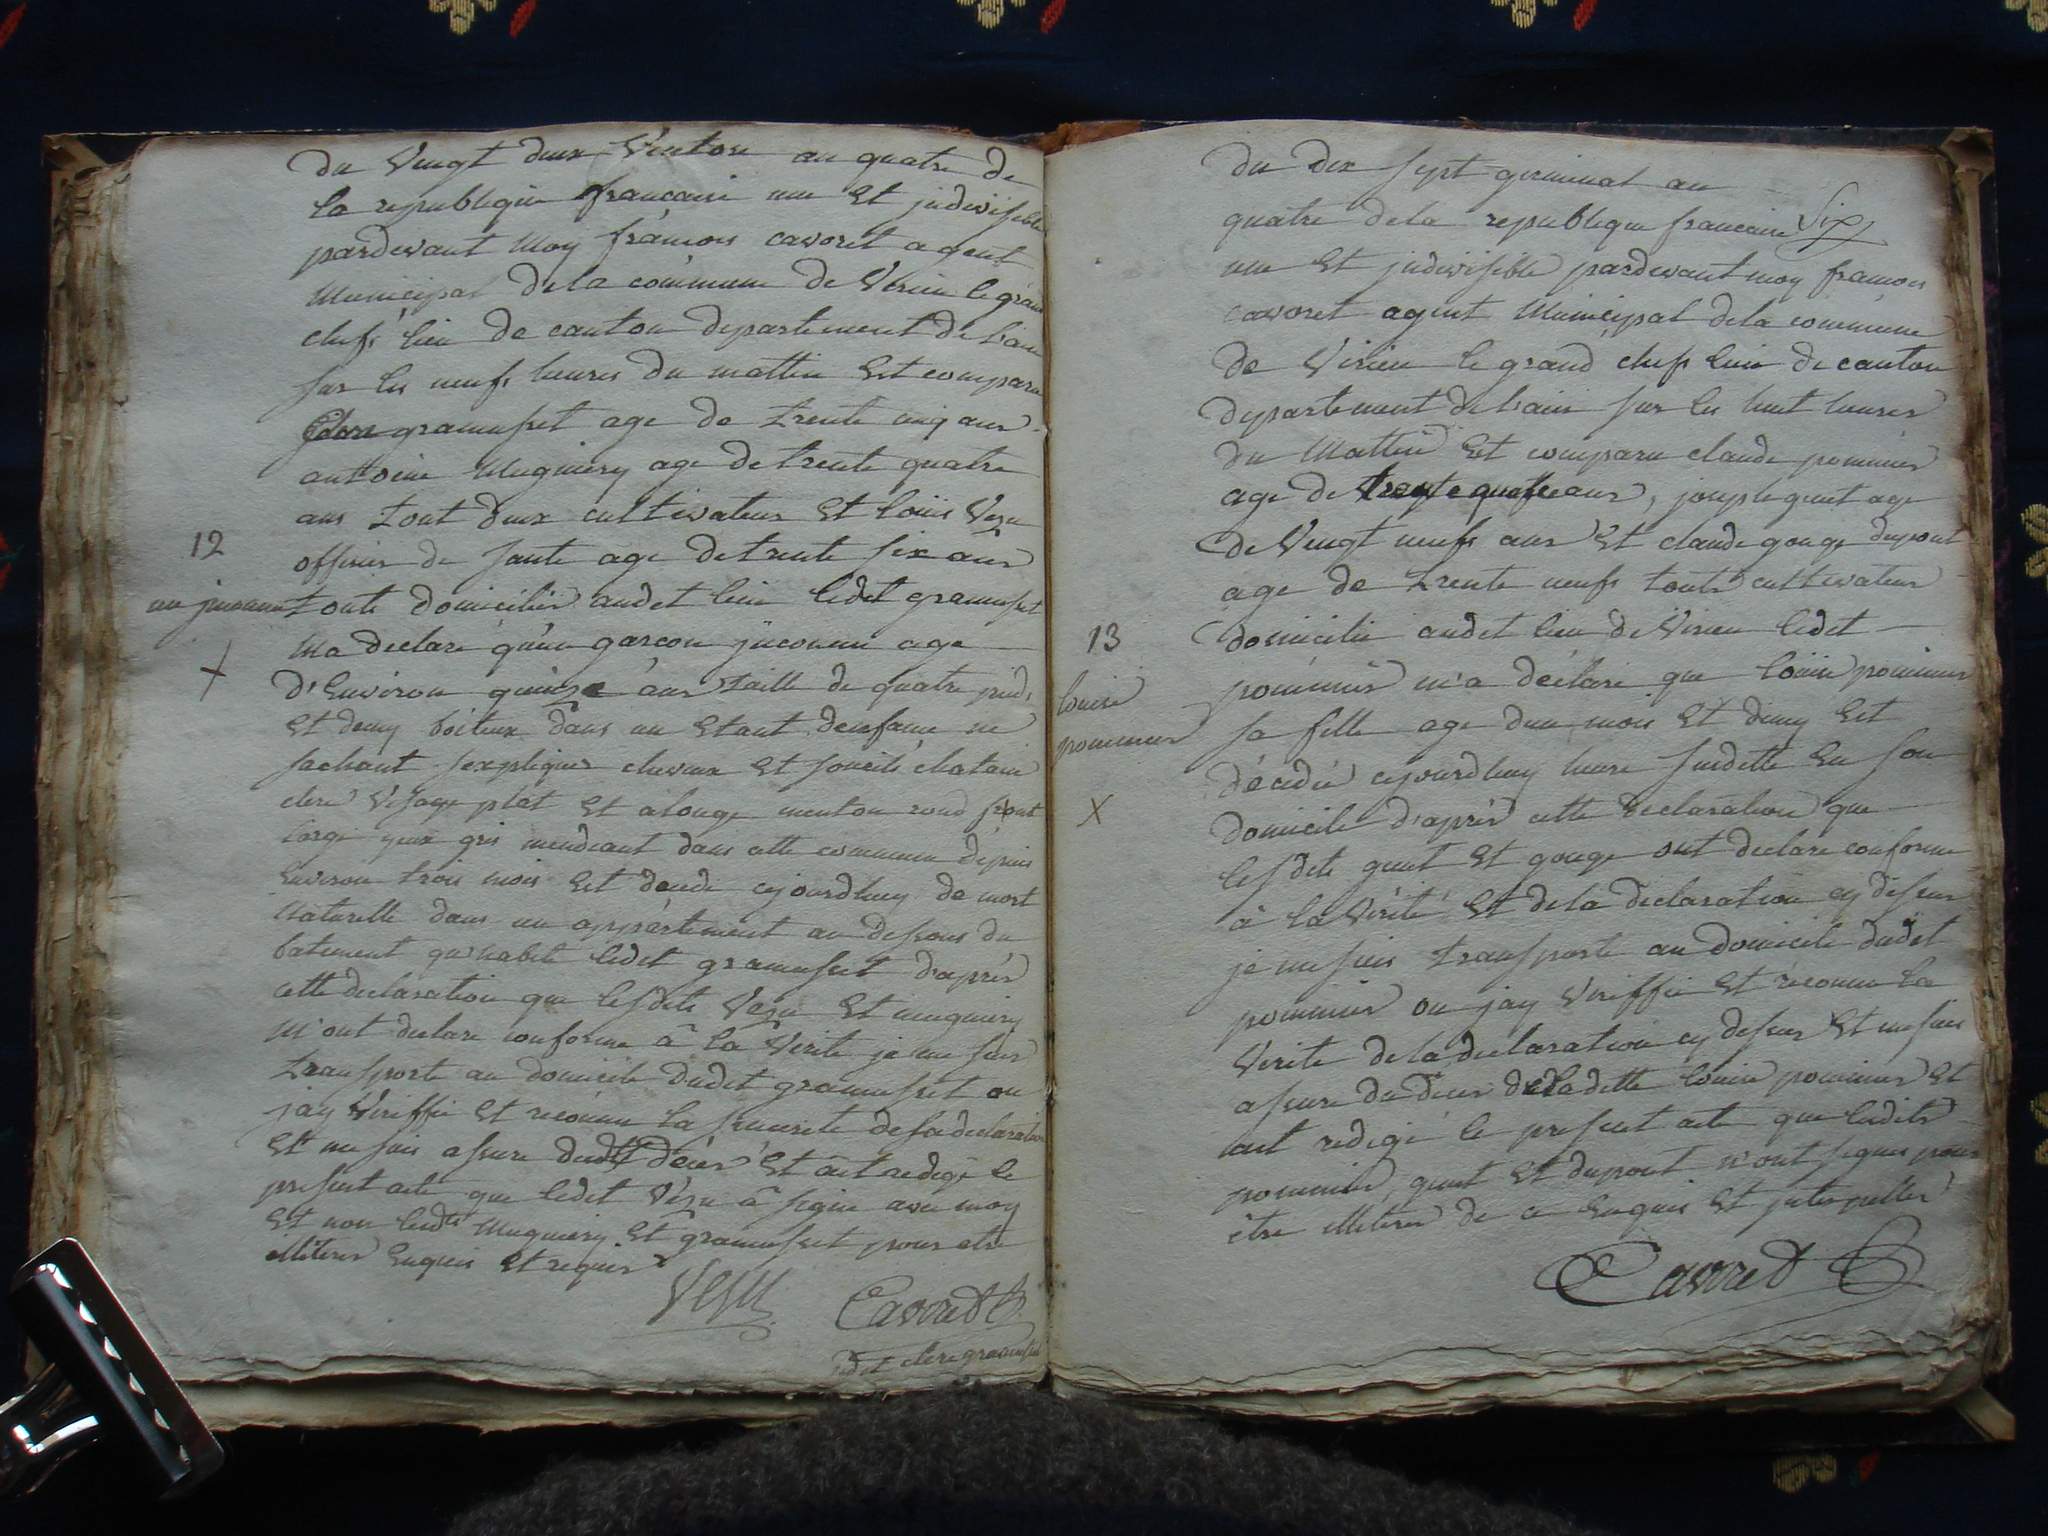 du vingt deux Ventose an quatre de
la republique francaise une et jndivisible
pardevant moy francois cavoret agent
Municipal de la commune de Virieu le grand
chefs lieu de canton departement de l'ain
sur les neufs heures du mattin est comparu
gramusset age de trente cinq ans
anttoine Mugniery age de trente quatre
ans tout deux cultivateur et louis Vezu
officier de sante age de trente six ans
12
un jnconnu
touts domicilies audet lieu ledet gramusset
Ma declare qu'un garcon jnconnu age
X
d'Environ quinze ans taille de quatre pieds
et demy boiteux dans un Etant denfance ne
sachant sexpliquer cheveux et sourcils chatain
clere visage plat et alonge menton rond front
large yeux gris mendiant dans cette commune depuis
Environ trois mois est decede cejourdhuy de mort
Naturelle dans un appartement au dessous du
batiment qu'habite ledet gramusset d'apres
cette declaration que lesdits Vezu et mugniery
m'ont declare conforme â la Verite je me suis
transporte au domicile dudet gramusset ou
jay Veriffie et reconnu la sincerite de sa declaration
et me suis assure dudt déces et ait redige le
present acte que ledet Vezu â signe avec moy
et non lesdts Mugniery et gramusset pour etre
illiteres Enquis et requis
Vezu
Cavoret
clere gramusset
du dix sept germinal an
quatre de la republique francaise
Six
une et jndivisible pardevant moy francois
cavoret agent Municipal de la commune
de Virieu le grand chefs lieu de canton
departement de l'ain sur les huit heures
du Mattin est comparu claude pominier
age de trente quatre ans, joseph guut age
de Vingt neufs ans et claude gouge dupont
age de trente neufs touts cultivateur
13
domicilie audet lieu de Virieu ledet
louise
pominier
pominier m'a déclare que louise pominier
sa fille age dun mois et demy est
X
décédée cejourdhuy heure susdette en son
domicile d'après cette declaration que
lesdits guut et gouge ont declare conforme
â la Vérité et de la declaration cy dessus
je me suis transporte au domicile dudet
pominier ou jay Veriffie et reconnu la
Verite de la declaration cy dessus et me suis
assure du déces de ladette louise pominier et
ait redigé le present acte que lesdits
pominier, guut et dupont n'ont signes pour
être illiteres de ce Enquis et jnterpelles
Cavoret